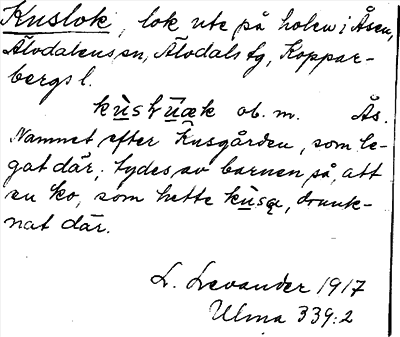 Kuslok, lok ute på holen i Åsen,
Älvdalens sn, Älvdals tg, Koppar-
bergs l.
kùsłùæk ob. m. Ås.
Namnet efter Kusgården, som le-
gat där; tydes av barnen så, att
en ko, som hette kùsa, drunk-
nat där.
L. Levander 1917
Ulma 339:2